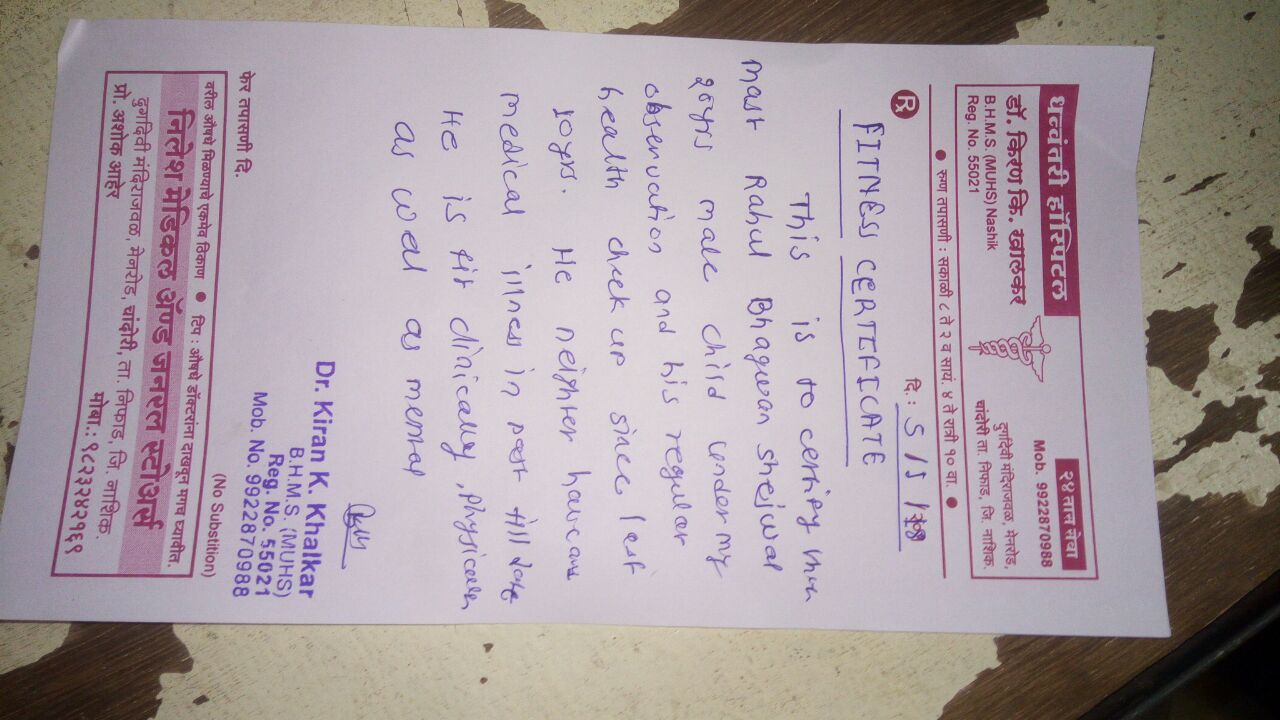 धन्वंतरी हॉस्पिटल
२४ तास सेवा
डॉ. किरण कि. खालकर
B.H.M.S. (MUHS) Nashik
Reg. No. 55021
Mob. 9922870988
दुर्गादेवी मंदिराजवळ, मेनरोड,
चांदोरी ता. निफाड, जि. नाशिक.
● रुग्ण तपासणी : सकाळी ८ ते २ व सायं. ४ ते रात्री १० वा. ●
Rx
दि.: 5/5/18
FITNESS CERTIFICATE
This is to certify
Mast Rahul Bhagwan Shejwal
20yrs male child under my
observation and his regular
health check up since last
10yrs. He neighter
medical illness in past till date
He is fit clinically, physically
as well as mental
Dr. Kiran K. Khalkar
B.H.M.S. (MUHS)
Reg. No. 55021
Mob. No. 9922870988
फेर तपासणी दि.
(No Substition)
वरील औषधे मिळण्याचे एकमेव ठिकाण ● टिप : औषधे डॉक्टरांना दाखवून मगच घ्यावीत.
निलेश मेडिकल अॅण्ड जनरल स्टोअर्स
दुर्गादेवी मंदिराजवळ, मेनरोड, चांदोरी, ता. निफाड, जि. नाशिक.
प्रो. अशोक आहेर
मोबा.: ९८२३२४२५६९